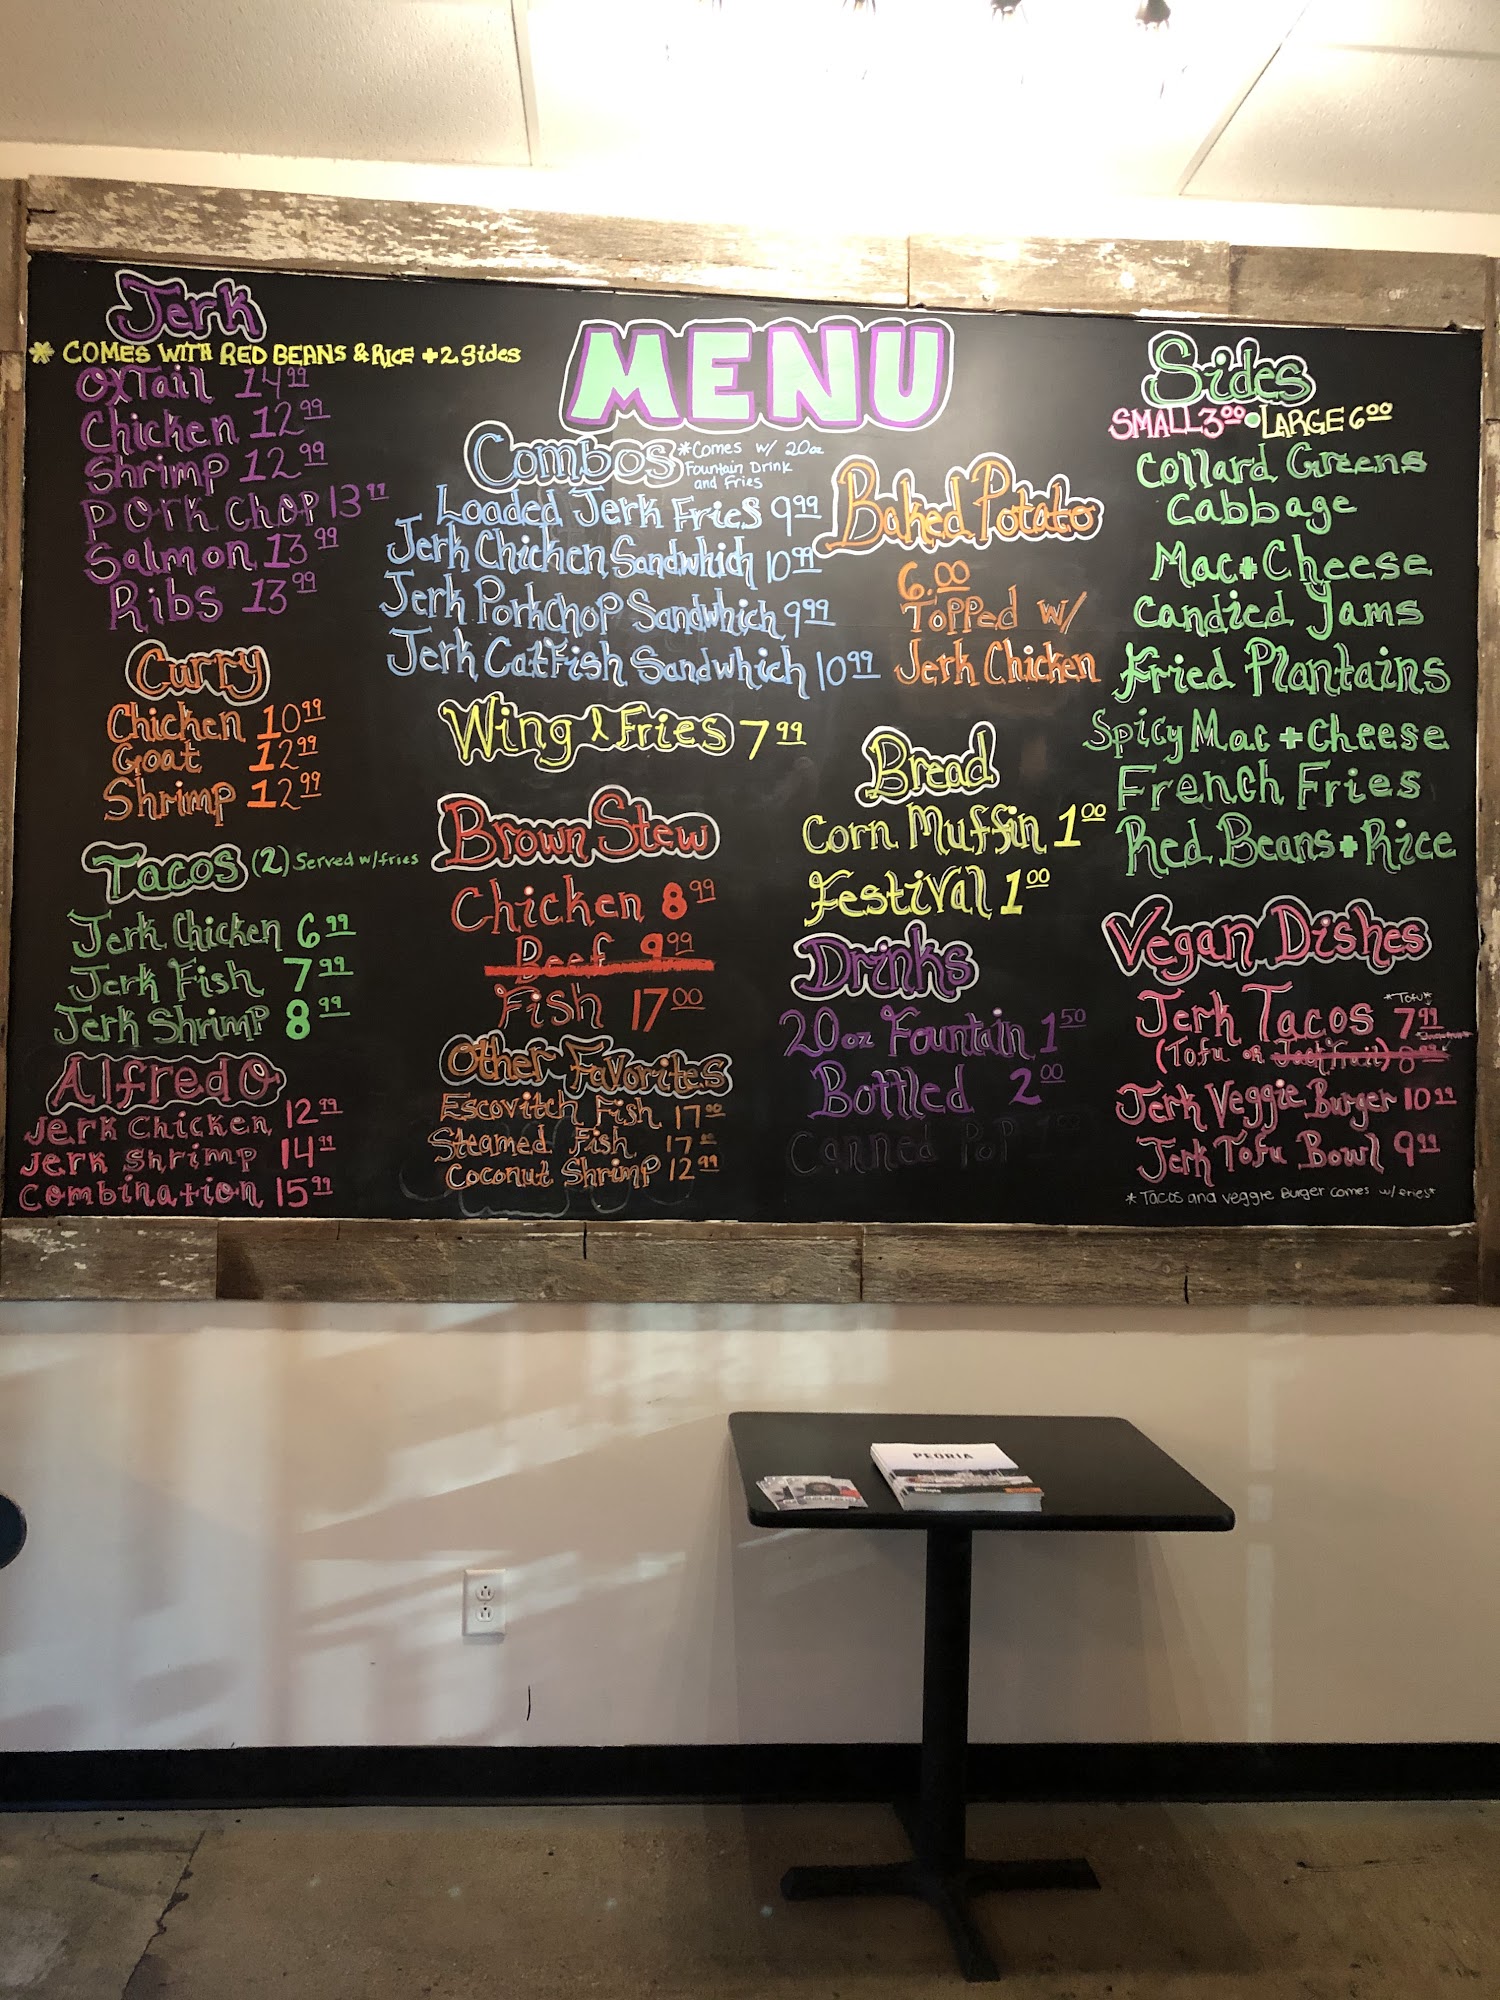 Jerk
* COMES WITH RED BEANS & RICE + 2 Sides
OxTail 14.99
Chicken 12.99
Shrimp 12.99
Pork Chop 13.99
Salmon 13.99
Ribs 13.99
Curry
Chicken 10.99
Goat 12.99
Shrimp 12.99
Tacos (2) Served w/fries
Jerk Chicken 6.99
Jerk Fish 7.99
Jerk Shrimp 8.99
Alfredo
Jerk Chicken 12.99
Jerk Shrimp 14.99
Combination 15.99
MENU
Combos *Comes w/ 20oz
Fountain Drink
and Fries
Loaded Jerk Fries 9.99
Jerk Chicken Sandwhich 10.99
Jerk PorkChop Sandwhich 9.99
Jerk CatFish Sandwhich 10.99
Wing & Fries 7.99
Brown Stew
Chicken 8.99
Beef 9.99
Fish 17.00
Other Favorites
Escovitch Fish 17.00
Steamed Fish 17.00
Coconut Shrimp 12.99
Baked Potato
6.00
Topped w/
Jerk Chicken
Bread
Corn Muffin 1.00
Festival 1.00
Drinks
20oz Fountain 1.50
Bottled 2.00
Canned Pop
Sides
SMALL 3.00 • LARGE 6.00
Collard Greens
Cabbage
Mac + Cheese
Candied Yams
Fried Plantains
Spicy Mac + Cheese
French Fries
Red Beans + Rice
Vegan Dishes
*Tofu*
Jerk Tacos 7.99
(Tofu or Jackfruit)
Jerk Veggie Burger 10.99
Jerk Tofu Bowl 9.99
* Tacos and veggie Burger comes w/ fries*
PEORIA